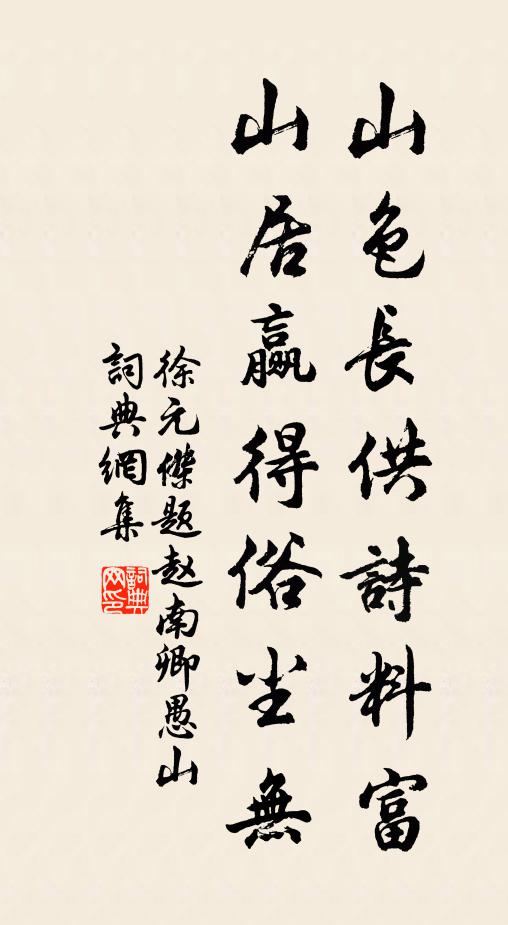 山色長供詩料富
山居贏得俗尘無
徐元傑題赵南卿愚山
詞典網集
詞典网印